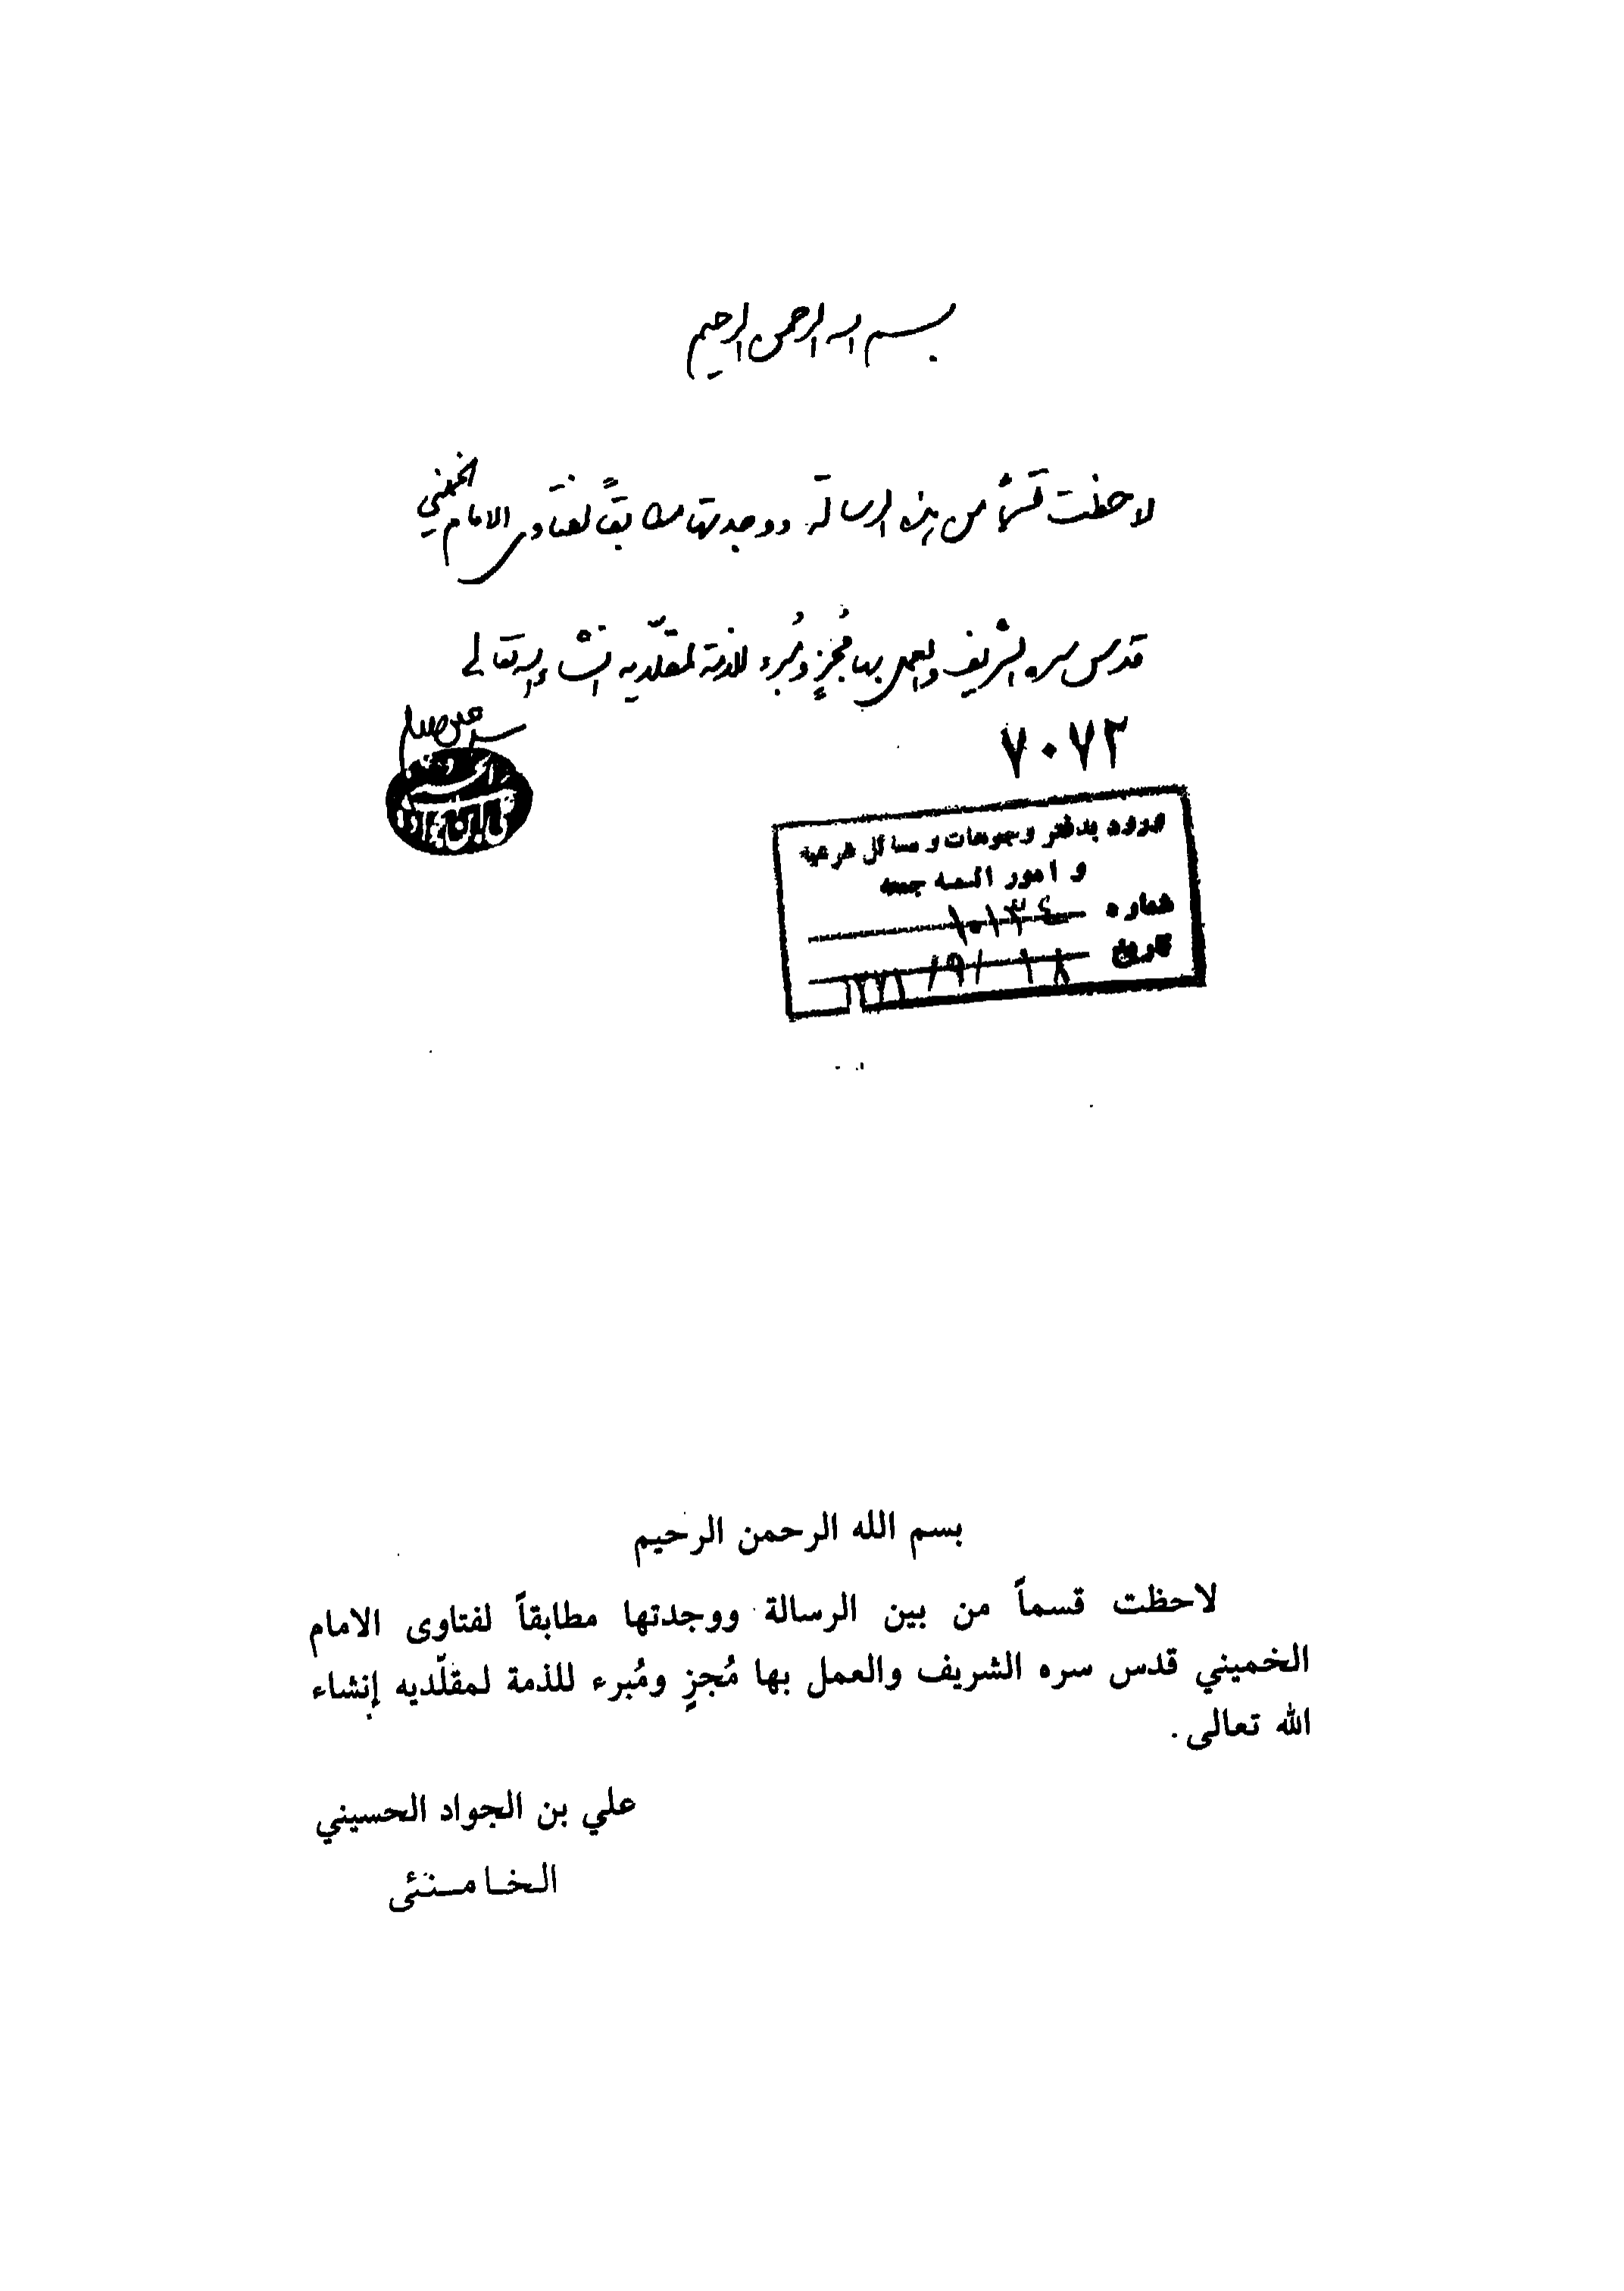 بسم الله الرحمن الرحيم
لاحظت قسماً من هذه الرسالة ووجدتها مطابقاً لفتاوى الامام الخميني
قدس سره الشريف والعمل بها مُجزٍ ومُبرء للذمة لمقلّديه انشاء الله تعالى
٧٠٧٢
ورود بدفتر وجوهات و مسائل شرعیه
و امور ائمه جمعه
شماره ١٠١٣٤
تاریخ ١٨ /٩/
بسم الله الرحمن الرحيم
لاحظت قسماً من بين الرسالة ووجدتها مطابقاً لفتاوى الامام
الخميني قدس سره الشريف والعمل بها مُجزٍ ومُبرء للذمة لمقلّديه إنشاء
الله تعالى.
علي بن الجواد الحسيني
الخامنئى